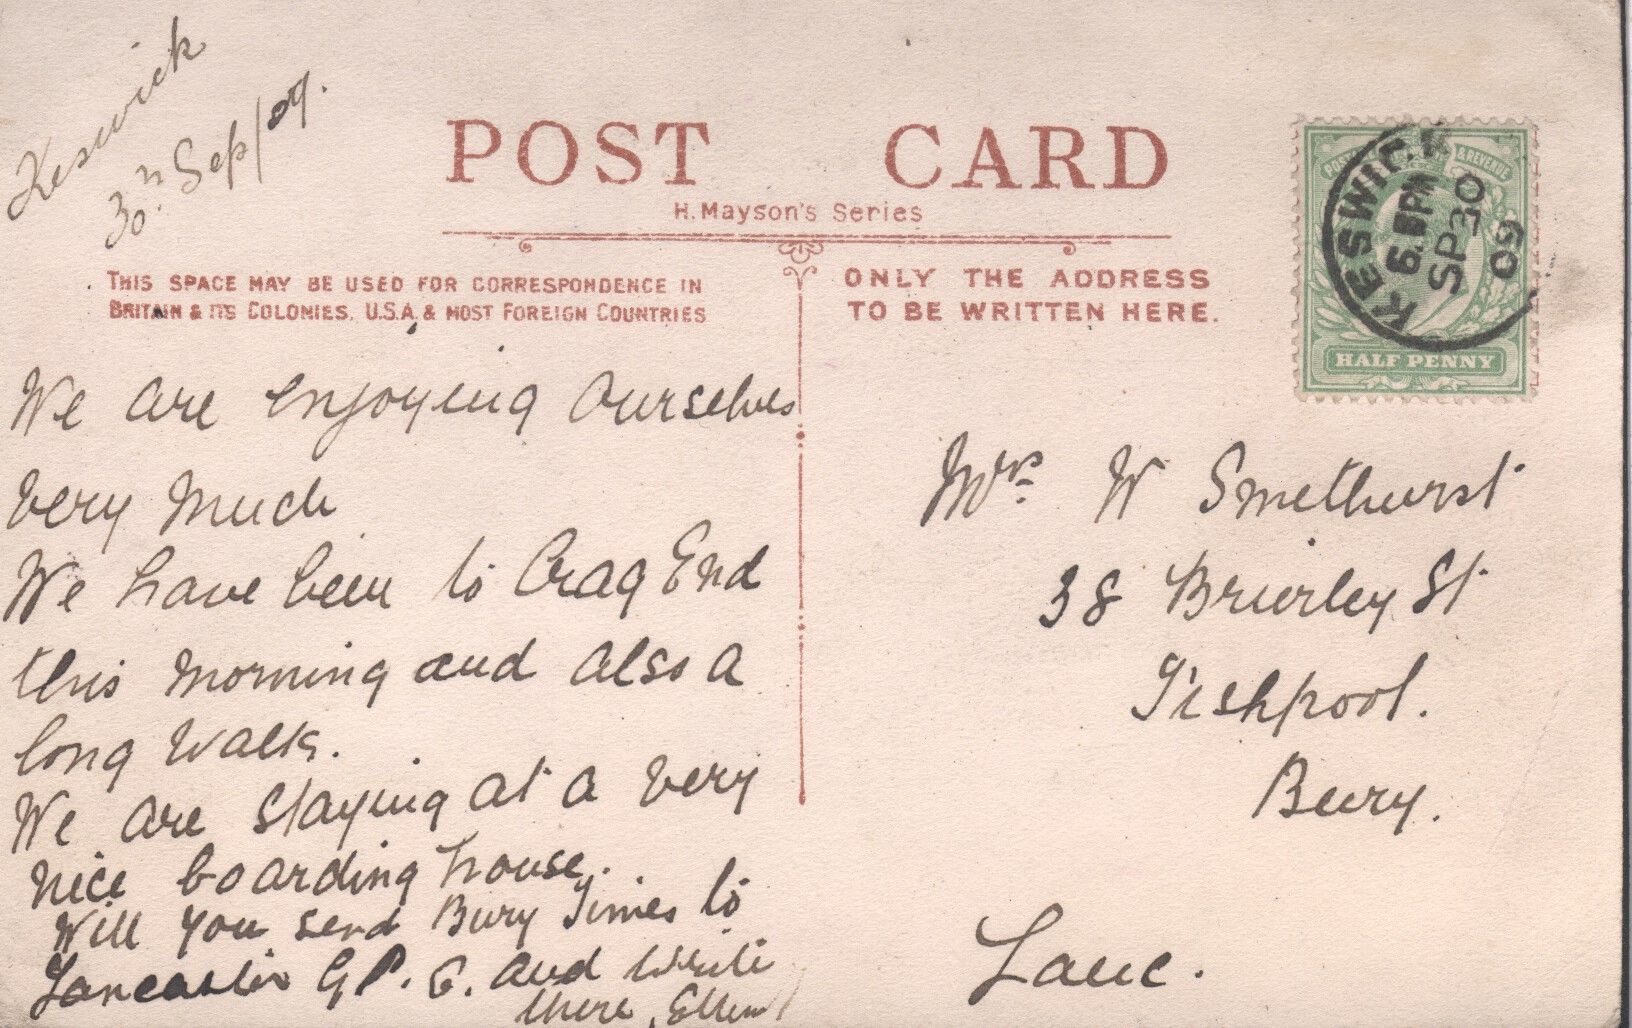 Keswick
30th Sep/09.
POST CARD
H. Mayson's Series
THIS SPACE MAY BE USED FOR CORRESPONDENCE IN
BRITAIN & ITS COLONIES, U.S.A. & MOST FOREIGN COUNTRIES
We are enjoying ourselves
very much
We have been to Crag End
this morning and also a
long walk.
We are staying at a very
nice boarding house.
Will you send Bury Times to
Lancaster G. P. O. and write
there, Ellen
ONLY THE ADDRESS
TO BE WRITTEN HERE.
KESWICK
6. PM
SP 30
09
& REVENUE
HALF PENNY
Mrs W Smethurst
38 Brierley St
Fishpool.
Bury.
Lanc.